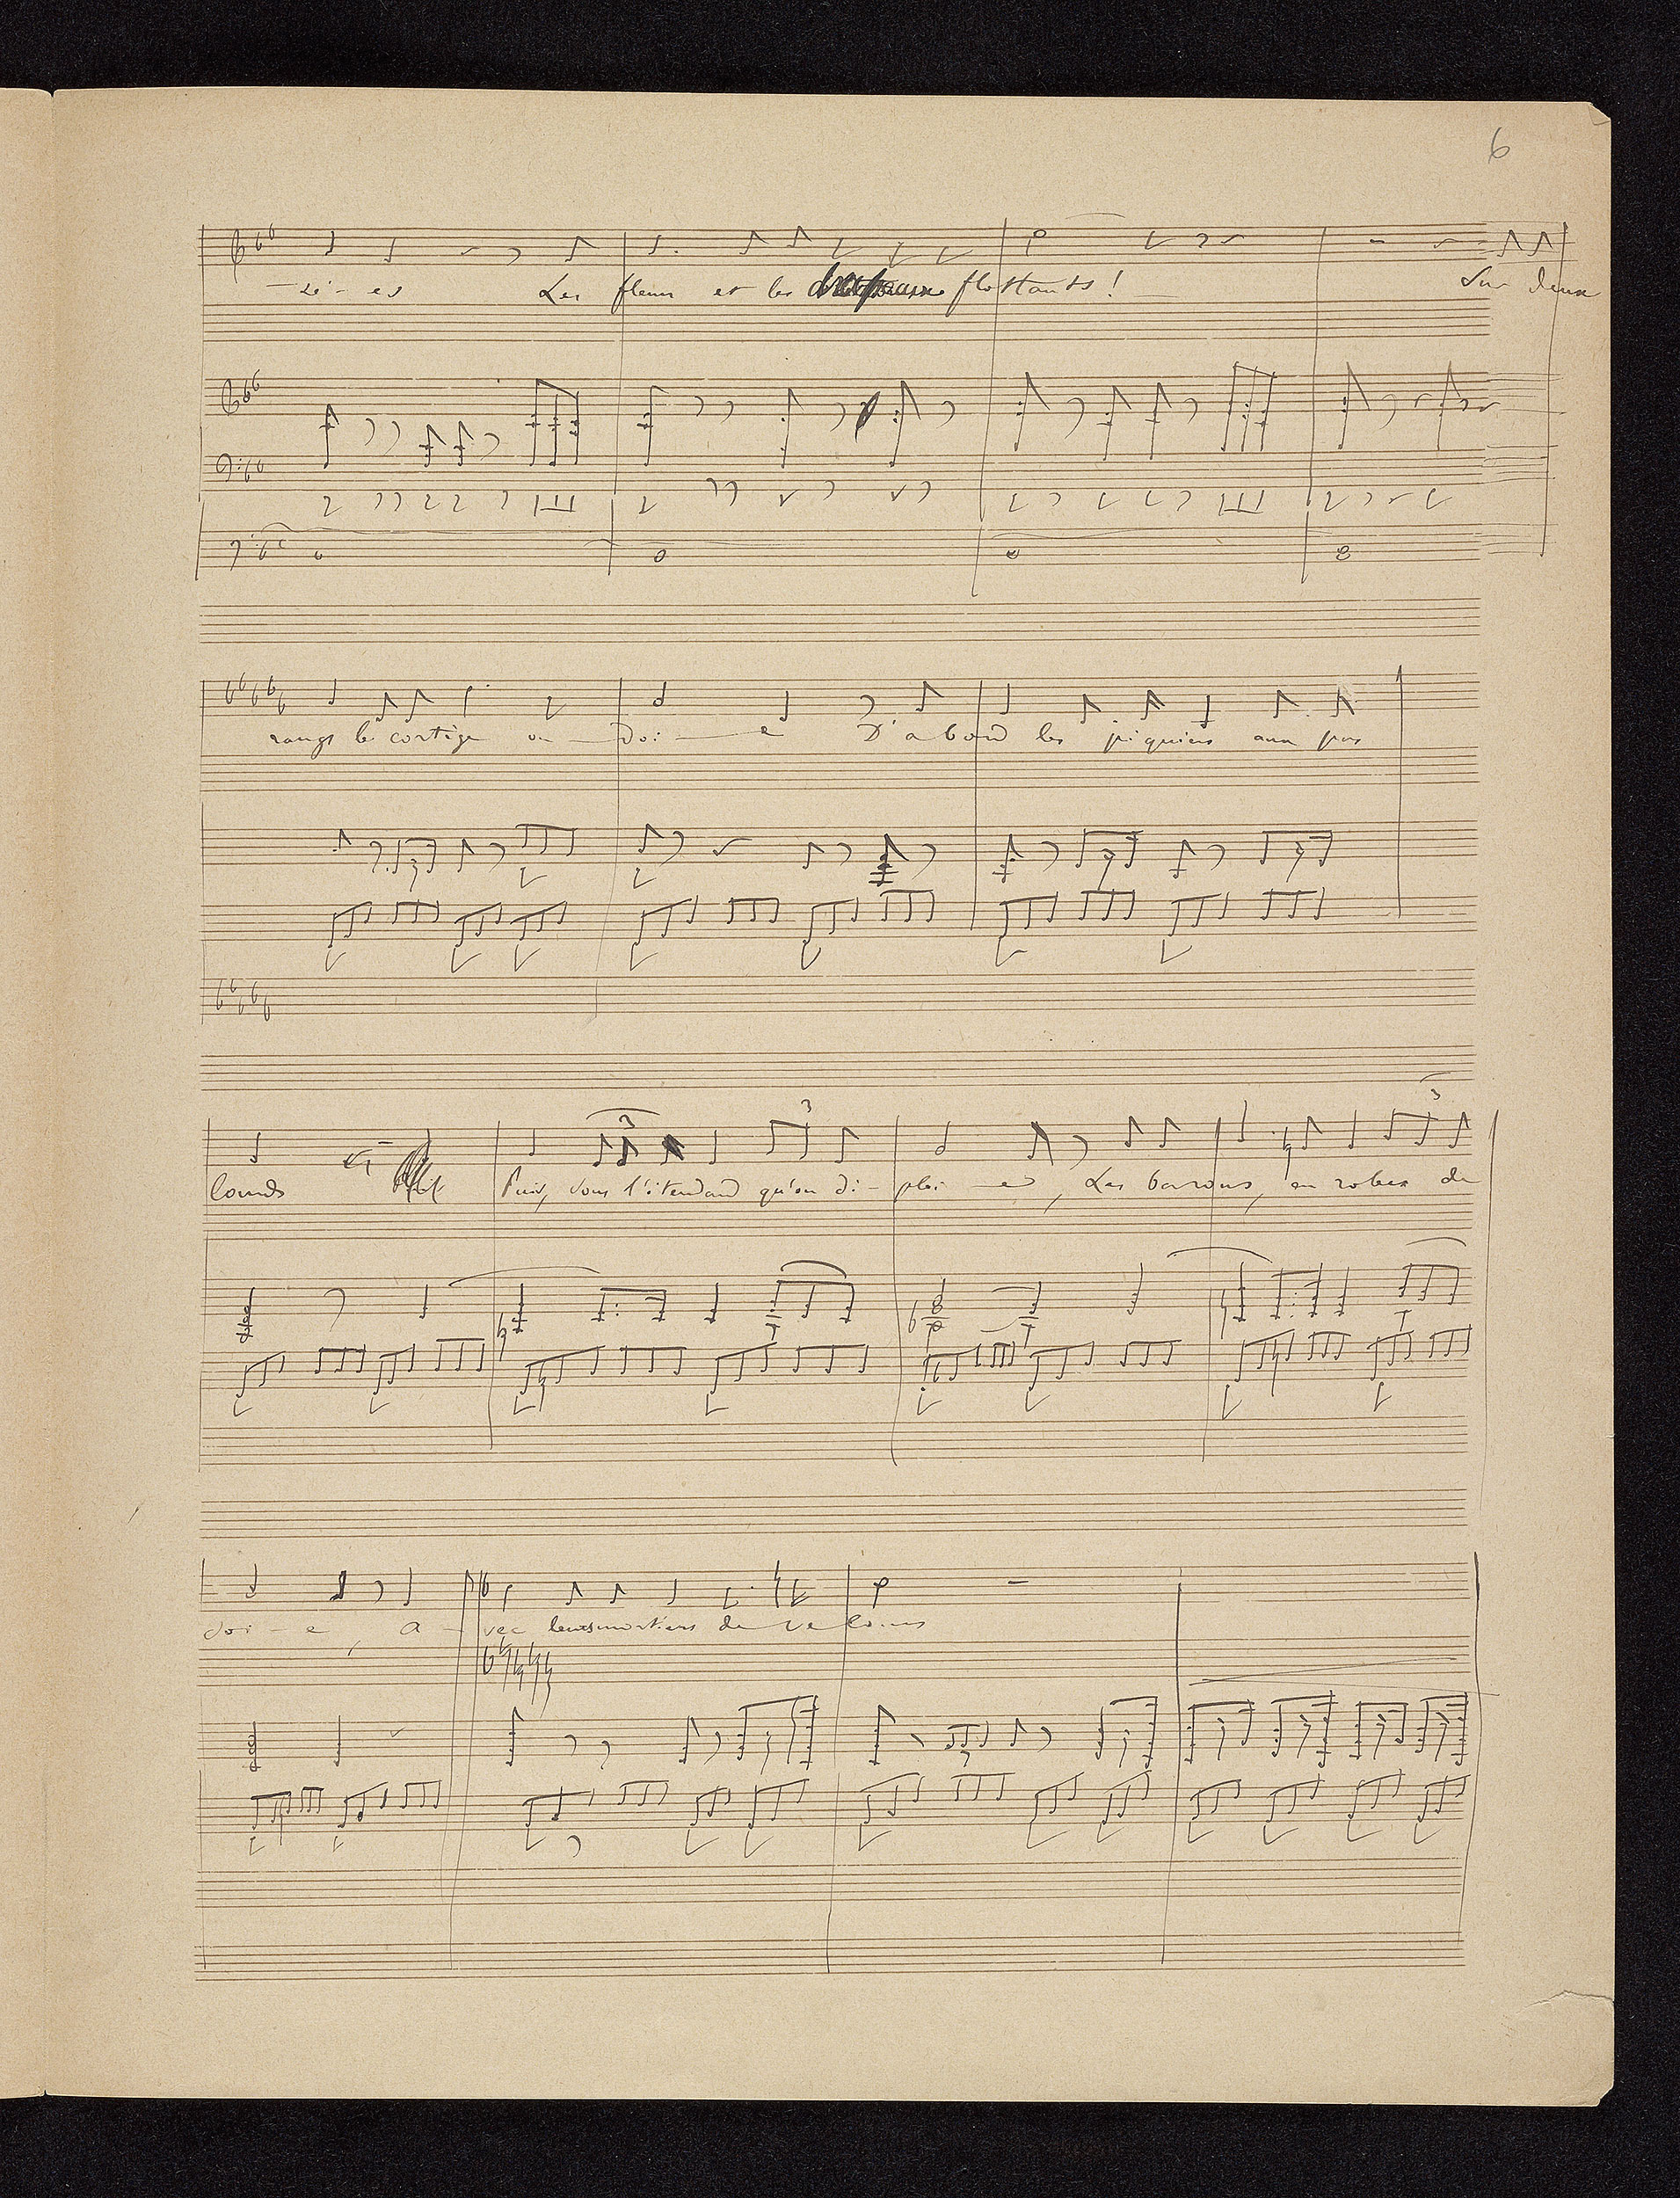 6
-ré-es Les fleurs et les drapeaux flottants! Sur deux
rangs le cortège on-doi-e D'abord les piquiers aux pas
lourds Puis, sous l'étendard qu'on dé-ploi-e, Les barons, en robes de
soi-e, A-vec leurs mortiers de velours
3 3 3